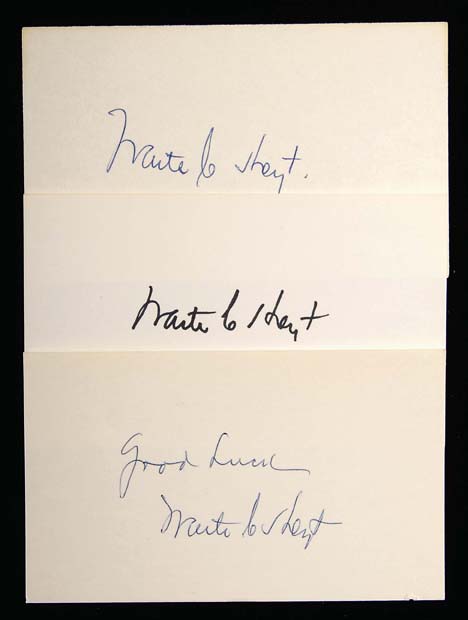 Waite C Hoyt.
Waite C Hoyt
Good Luck
Waite C Hoyt